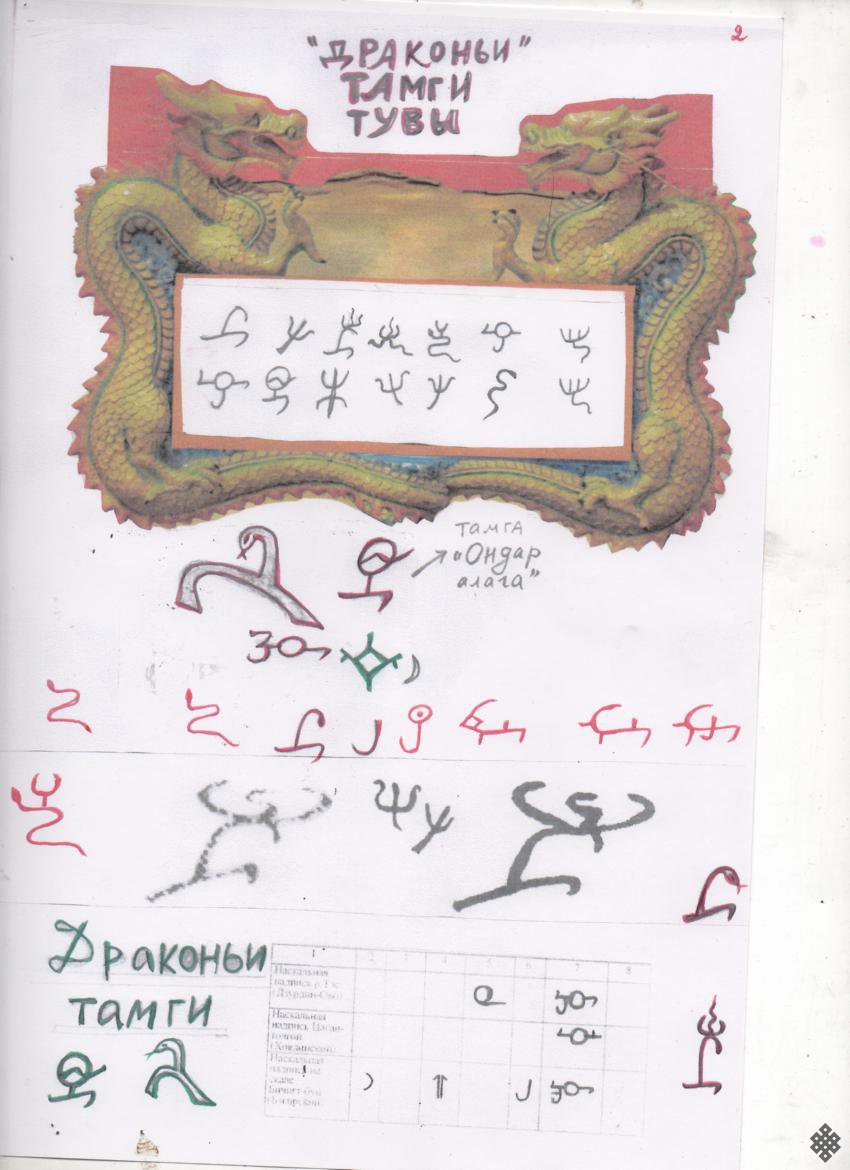 2
"ДРАКОНЬИ"
ТАМГИ
ТУВЫ
тамга
"Ондар
алага"
Драконьи
тамги
1 2 3 4 5 6 7 8
Наскальная
надпись р. Тэс
Наскальная
надпись Цаган-
толгой
Наскальная
надпись на
скале
Бичигт-